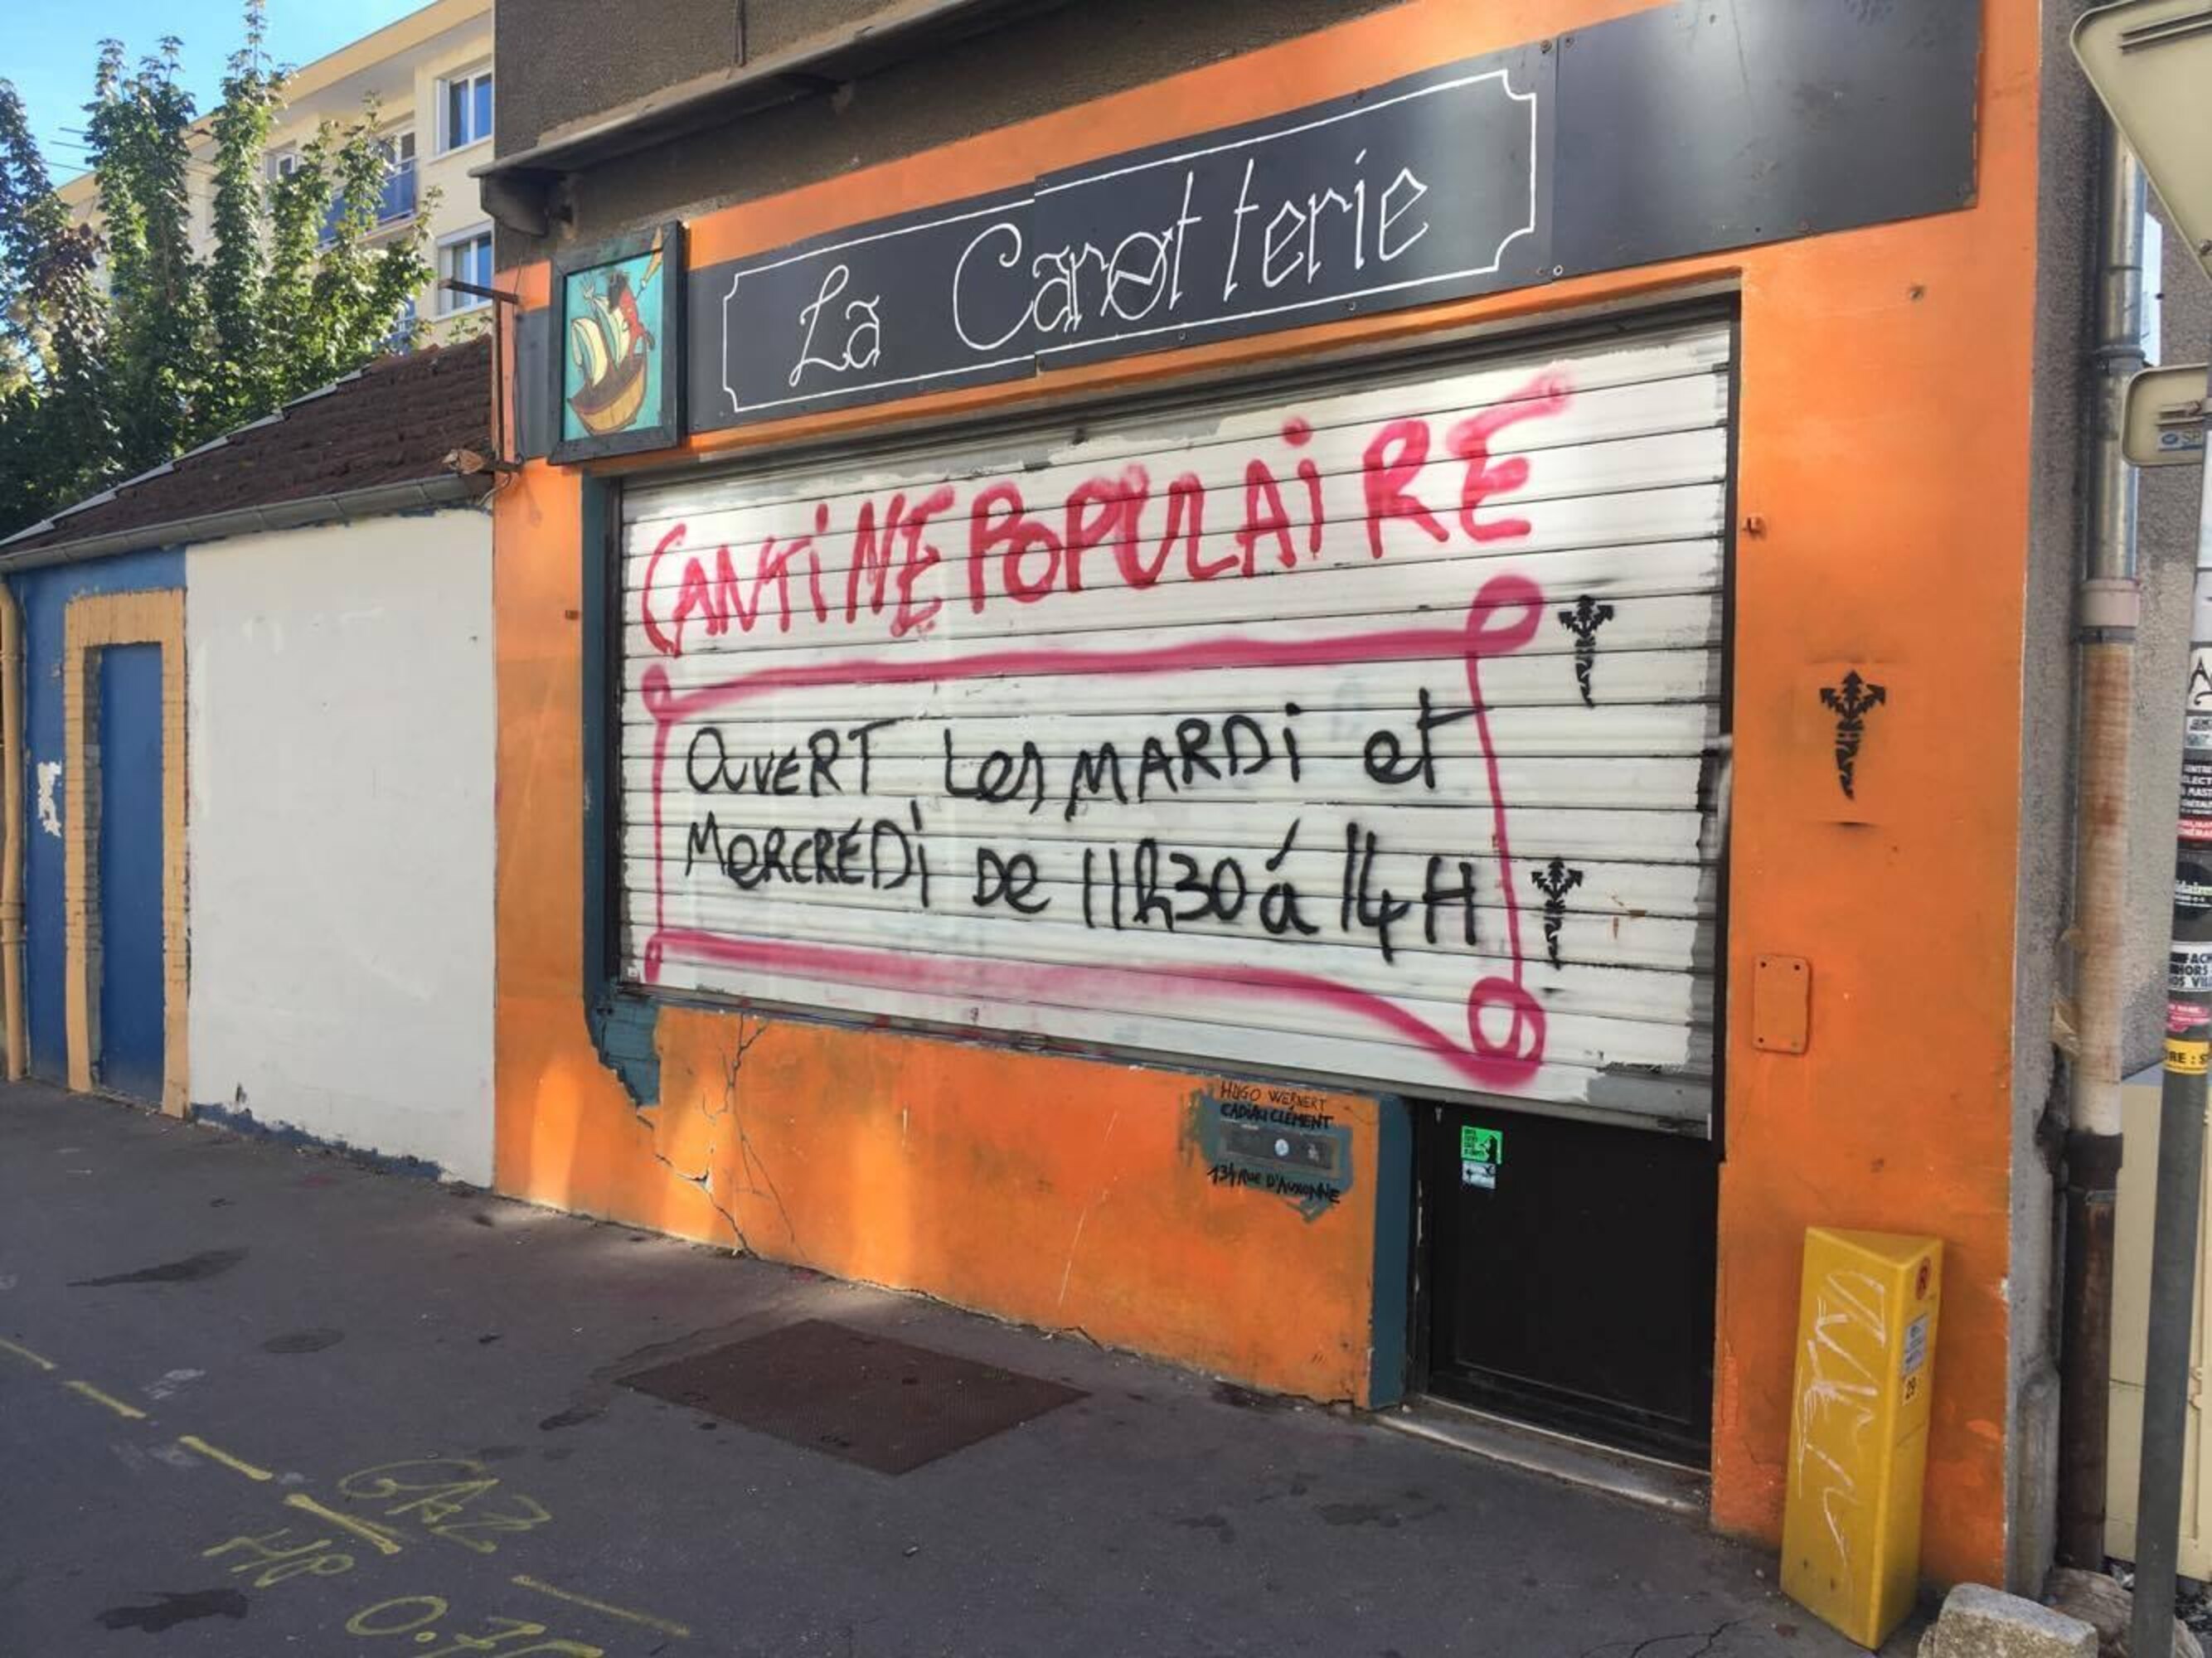 La Carotterie
CANTINE POPULAIRE
OUVERT Les MARDi et
MERCREDi De 11h30 á 14H
HUGO WERNERT
CLÉMENT
RUE D'AUXONNE
29
GAZ
HP